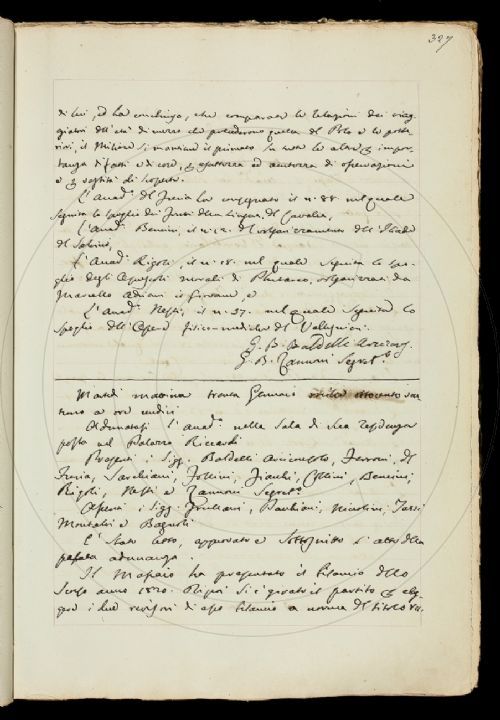 327
di lui, ed ha conchiuso, che comparate le relazioni dei viag-
giatori dell'età di mezzo che precederono quella del Polo e le poste-
riori, il Milione si mantiene il primato su tutte le altre impor-
tanza di fatti e di cose, ed esattezza di osservazioni
L'Accad. Del Furia ha consegnato il n. 88. nel quale
seguita lo spoglio dei Frutti della Lingua, del Cavalca,
L'Accad. Bencini, il n. 12. del volgarizzamento dell'
L'Accad. Rigoli, il n. 18. nel quale seguita lo spo-
glio degli Opuscoli morali di Plutarco, volgarizzati da
Marcello Adriani il Giovane, e
L'Accad. Nesti, il n. 37. nel quale seguita lo
spoglio dell'Opere fisico-mediche del Vallisnieri.
G. B. Baldelli Arcicons.
G. B. Zannoni Segret.º
Martedì mattina trenta Gennaio mille ottocento ven
tuno a ore undici
Adunatasi l'Accad. nella Sala di sua residenza
posta nel Palazzo Riccardi
Presenti i Sigg. Baldelli Arciconsolo, Ferroni, del
Furia, Sarchiani, Follini, Fiacchi, Collini, Bencini,
Rigoli, Nesti e Zannoni Segret.º
Assenti i Sigg. Giuliani, Niccolini,
Montalvi e Bagnoli
È stato letto, approvato e sottoscritto l'atto della
passata adunanza.
Il Massaio ha presentato il bilancio dello
scorso anno 1820. si è girato il partito
i due revisori di esso bilancio a norma del titolo VII.